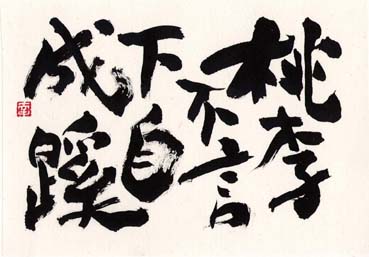 桃李
不言
下自
成蹊